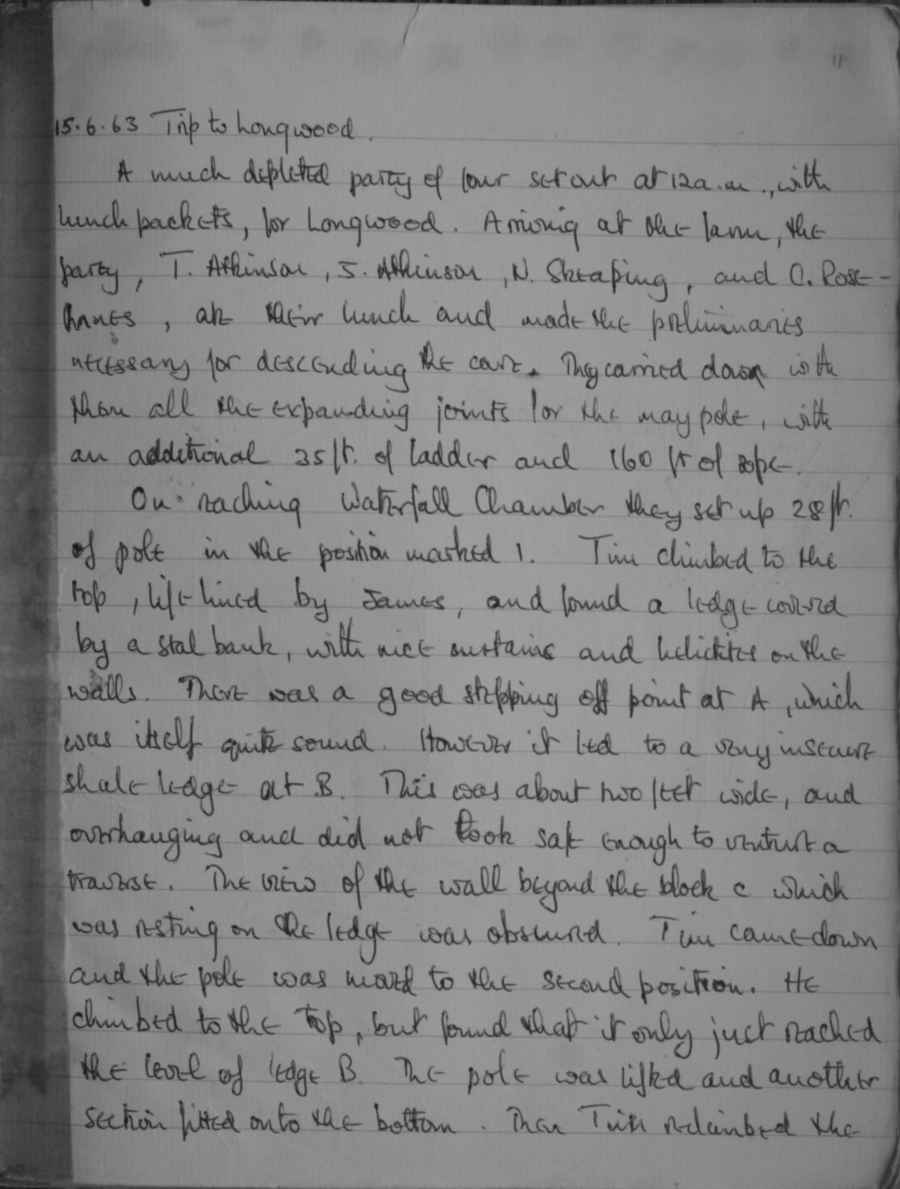 11
15.6.63 Trip to Longwood.
A much depleted party of four set out at 12 a.m., with
lunch packets, for Longwood. Arriving at the farm, the
party, T. Atkinson, J. Atkinson, N. Skeaping, and C. Rose-
hanes, ate their lunch and made the preliminaries
necessary for descending the cave. They carried down with
them all the expanding joints for the maypole, with
an additional 35 ft. of ladder and 160 ft of rope.
On reaching Waterfall Chamber they set up 28 ft.
of pole in the position marked 1. Tim climbed to the
top, lifelined by James, and found a ledge covered
by a stal bank, with nice curtains and helictites on the
walls. There was a good stepping off point at A, which
was itself quite sound. However it led to a very insecure
shale ledge at B. This was about two feet wide, and
overhanging and did not look safe enough to venture a
traverse. The view of the wall beyond the block C which
was resting on the ledge was obscured. Tim came down
and the pole was moved to the second position. He
climbed to the top, but found that it only just reached
the level of ledge B. The pole was lifted and another
section fitted onto the bottom. Then Tim reclimbed the